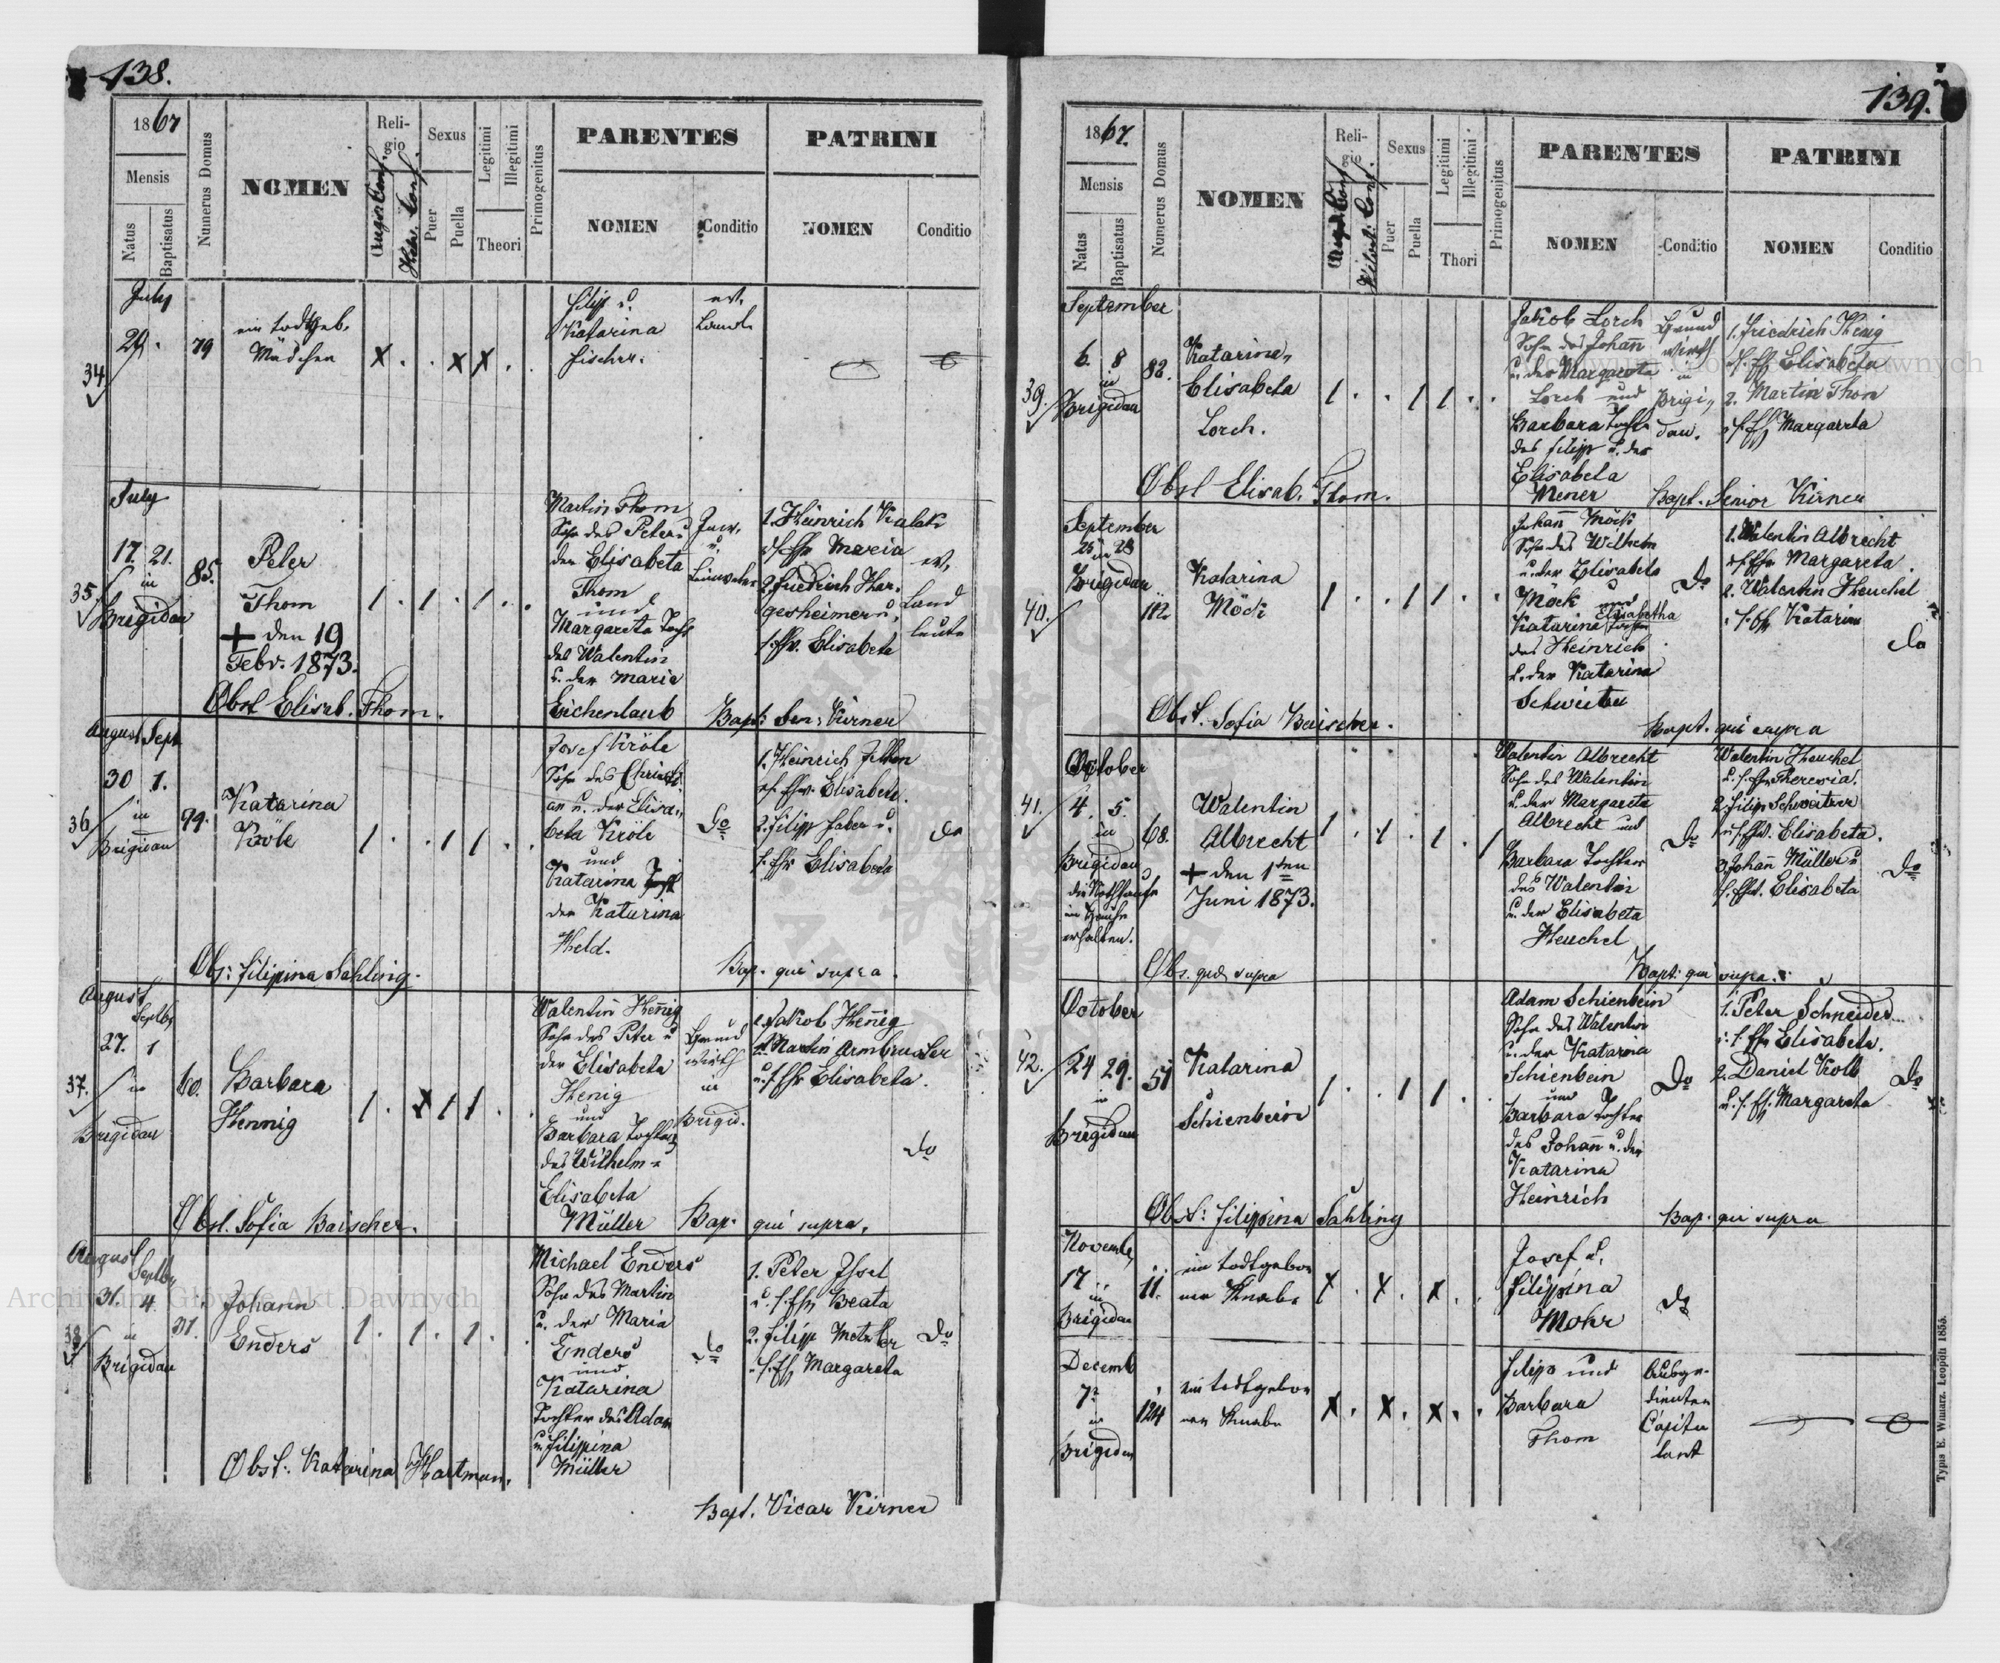 138.
1867
Mensis
Natus
Baptisatus
Numerus Domus
NOMEN
Religio
Augsb. Conf.
Helv. Conf.
Sexus
Puer
Puella
Legitimi
Illegitimi
Theori
Primogenitus
PARENTES
NOMEN
Conditio
PATRINI
NOMEN
Conditio
July
34
29.
79
ein todtgeb.
Mädchen
X . . X X . .
Filipp u
Katarina
Fischer.
July
35
17. 21.
in
Brigidau
85.
Peter
Thom
+ den 19
Febr. 1873.
1 . 1 . 1 . .
Martin Thom
Sohn des Peter u
der Elisabeta
Thom
und
Margareta Tocht
des Walentin
u. der Maria
Eichenlaub
1. Heinrich Kalak
Maria
2. Friedrich Har-
gesheimer u.
Elisabeta
ev.
Land
leute
Obst Elisab. Thom.
Bapt: Sen: Kirner
August Sept
36
30 1.
in
Brigidau
99.
Katarina
Kröle
1 . . 1 1 . .
Josef Kröle
Sohn des Christi-
an u. der Elisa-
beta Kröle
und
Katarina Tocht
der Katarina
Held.
Do
1. Heinrich
Elisabeta.
2. Filipp Faber u.
Elisabeta
Do
Obs: Filipina Sahling.
Bap. qui supra.
August
Septbr
37.
27. 1
in
Brigidau
60.
Barbara
Hennig
1 . X 1 1 . .
Walentin Henig
Sohn des Peter u
der Elisabeta
Henig
und
Barbara Tochter
des Wilhelm u
Elisabeta
Müller
Grund
wirth
in
Brigid.
1. Jakob Henig
2. Martin Armbruster
Elisabeta.
Do
Obst. Sofia Baischer.
Bap. qui supra.
August
Septbr
38
31. 4.
in
Brigidau
31.
Johann
Enders
1 . 1 . 1 . .
Michael Enders
Sohn des Martin
u. der Maria
Enders
und
Katarina
Tochter des Adam
u. Filippina
Müller
Do
1. Peter Issel
Beata
2. Filipp Metzler
Margareta
Do
Obst. Katarina Hartman.
Bapt. Vicar Kirner
139.
1867.
Mensis
Natus
Baptisatus
Numerus Domus
NOMEN
Religio
Augsb. Conf.
Helvet. Conf.
Sexus
Puer
Puella
Legitimi
Illegitimi
Thori
Primogenitus
PARENTES
NOMEN
Conditio
PATRINI
NOMEN
Conditio
September
39.
6. 8
in
Brigidau
82.
Katarina,
Elisabeta
Lorch.
1 . . 1 1 . .
Jakob Lorch
Sohn des Johann
u. der Margareta
Lorch und
Barbara Tocht
des Filipp u. der
Elisabeta
Mener
Grund
wirth
in
Brigi-
dau.
1. Friedrich Henig
Elisabeta
2. Martin Thom
Margareta
Obst Elisab. Thom.
Bapt. Senior Kirner
September
40.
25 28
in
Brigidau
112
Katarina
Möck
1 . . 1 1 . .
Johann Möck
Sohn des Wilhelm
u. der Elisabeta
Möck und
Katarina Elisabetha
Tochter
des Heinrich
u. der Katarina
Schweitzer
Do
1. Walentin Albrecht
Margareta.
2. Walentin Heuchel
Katarina
Do
Obst. Sofia Baischer.
Bapt. qui supra
October
41.
4. 5.
in
Brigidau
die Nothtaufe
im Hause
erhalten.
68.
Walentin
Albrecht
+ den 1ten
Juni 1873.
1 . 1 . 1 . 1
Walentin Albrecht
Sohn des Walentin
u. der Margareta
Albrecht und
Barbara Tochter
des Walentin
u. der Elisabeta
Heuchel
Do
Walentin Heuchel
Theresia.
2. Filipp Schweitzer
Elisabeta.
3. Johann Müller u
Elisabeta
Do
Obs. quae supra
Bapt: qui supra.
October
42.
24 29.
in
Brigidau
51
Katarina
Schienbein
1 . . 1 1 . .
Adam Schienbein
Sohn des Walentin
u. der Katarina
Schienbein
und
Barbara Tochter
des Johann u. der
Katarina
Heinrich
Do
1. Peter Schneider
Elisabeta.
2. Daniel Kolb
Margareta
Do
Obst: Filippina Sahling
Bap. qui supra
Novemb
17
in
Brigidau
11.
ein todtgebor
ner Knabe
X . X . X . .
Josef u.
Filippina
Mohr
Do
Decemb
7
in
Brigidau
124
ein todtgebor
ner Knabe
X . X . X . .
Filipp und
Barbara
Thom
Ausge-
dienter
Capitu
lant
Typis E. Winiarz. Leopoli 1855.
Archiwum Główne Akt Dawnych